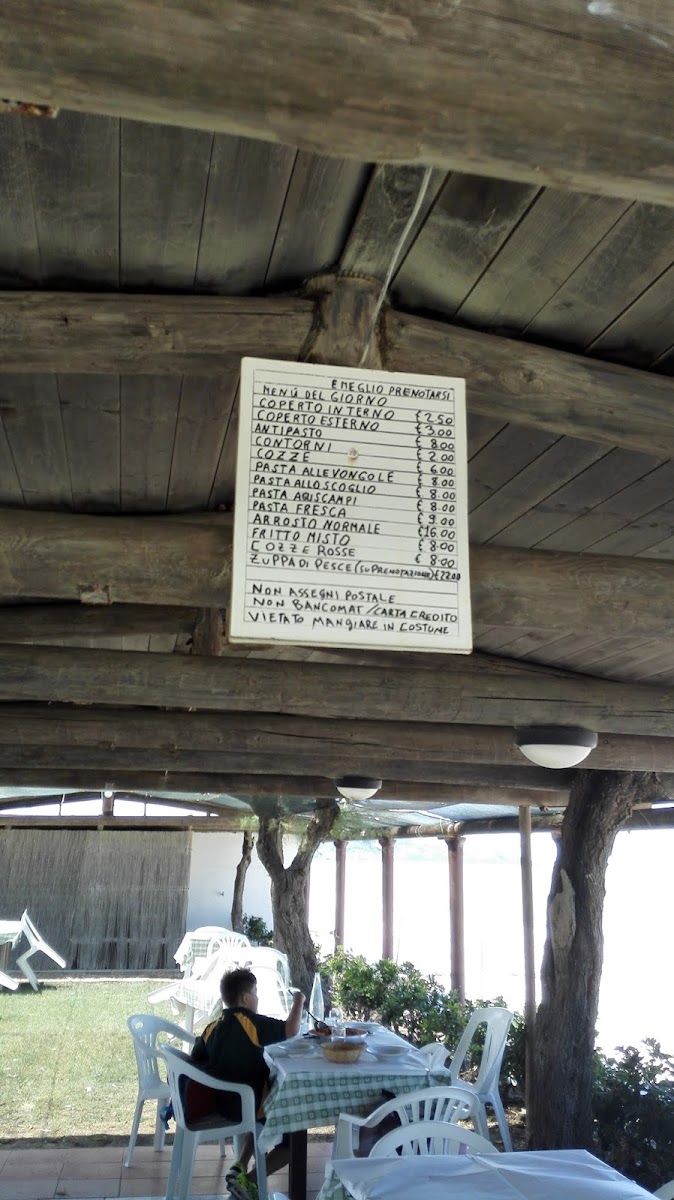 E MEGLIO PRENOTARSI
MENÚ DEL GIORNO
COPERTO INTERNO € 2.50
COPERTO ESTERNO € 3.00
ANTIPASTO € 8.00
CONTORNI € 2.00
COZZE € 6.00
PASTA ALLE VONGOLE € 8.00
PASTA ALLO SCOGLIO € 8.00
PASTA SCAMPI € 8.00
PASTA FRESCA € 9.00
ARROSTO NORMALE €16.00
FRITTO MISTO € 8.00
COZZE ROSSE € 8.00
ZUPPA DI PESCE (SU PRENOTAZIONE) €22.00
NON ASSEGNI POSTALE
NON BANCOMAT/CARTA CREDITO
VIETATO MANGIARE IN COSTUME